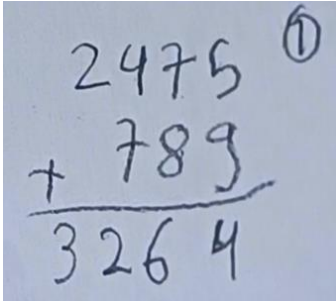 2475 ①
+ 789
3264